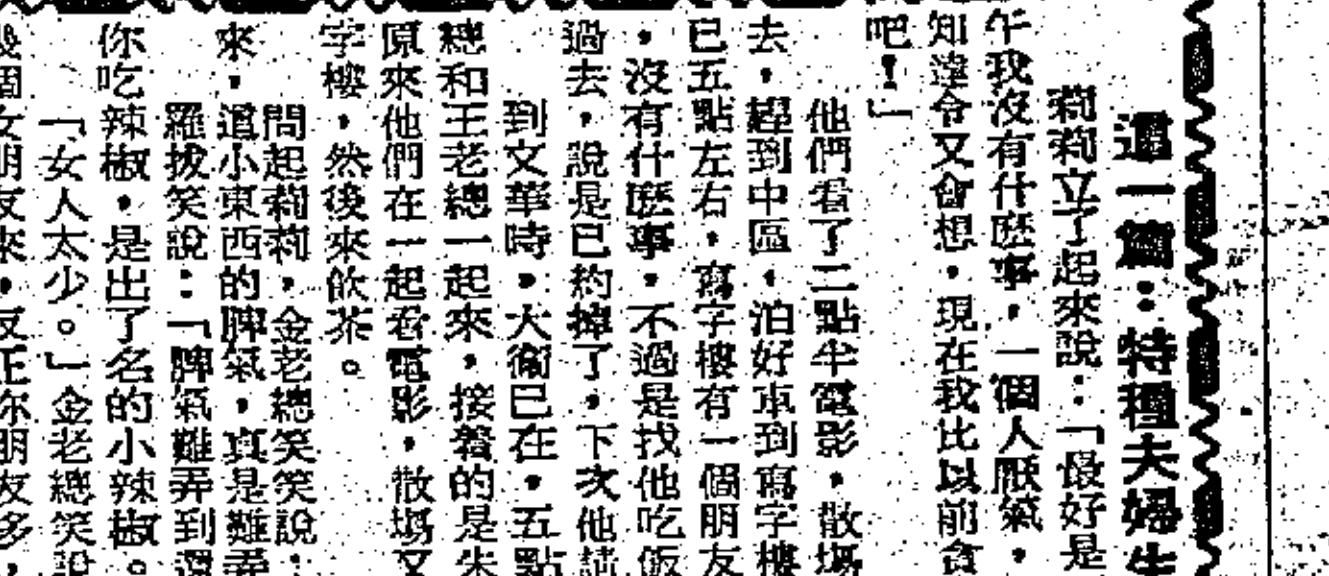 這一篇：特種夫婦生
莉莉立了起來說：「最好是
午我沒有什麽事，一個人厭氣，
知違令又會想，現在我比以前貪
吧！」
他們看了二點半電影，散塲
去，趕到中區，泊好車到寫字樓
已五點左右，寫字樓有一個朋友
，沒有什麽事，不過是找他吃飯
過去，說是已約掉了，下次他請
到文華時，大衞已在，五點
總和王老總一起來，接着的是朱
原來他們在一起看電影，散塲又
字樓，然後來飲茶。
問起莉莉，金老總笑笑說：
來，這小東西的脾氣，真是難弄
羅拔笑說：「脾氣難弄到還
你吃辣椒，是出了名的小辣椒。
「女人太少。」金老總笑說
幾個女朋友來，反正你朋友多，